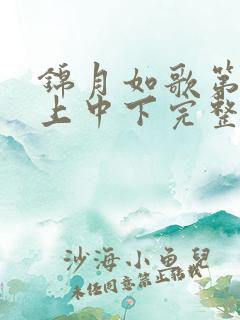 錦月如歌第
上中下完整
沙海小魚兒
未经同意禁止转载